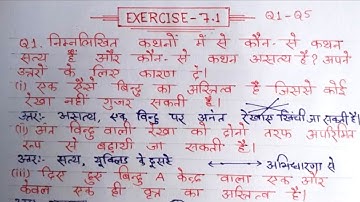 EXERCISE-7.1 Q1-Q5
Q1. निम्नलिखित कथनों में से कौन-से कथन
सत्य हैं और कौन-से कथन असत्य हैं? अपने
उत्तरों के लिए कारण दें।
(i) एक ऐसे बिन्दु का अस्तित्व है जिससे कोई
रेखा नहीं गुजर सकती है।
उत्तर:- असत्य, एक बिन्दु पर अनंत रेखाएँ खिंची जा सकती हैं।
(ii) अंत बिन्दु वाली रेखा को दोनों तरफ अपरिमित
रूप से बढ़ायी जा सकती है।
उत्तर:- सत्य, यूक्लिड के दूसरे अभिधारणा से
(iii) दिए हुए बिन्दु A केन्द्र वाला एक और
केवल एक ही वृत्त का अस्तित्व है।